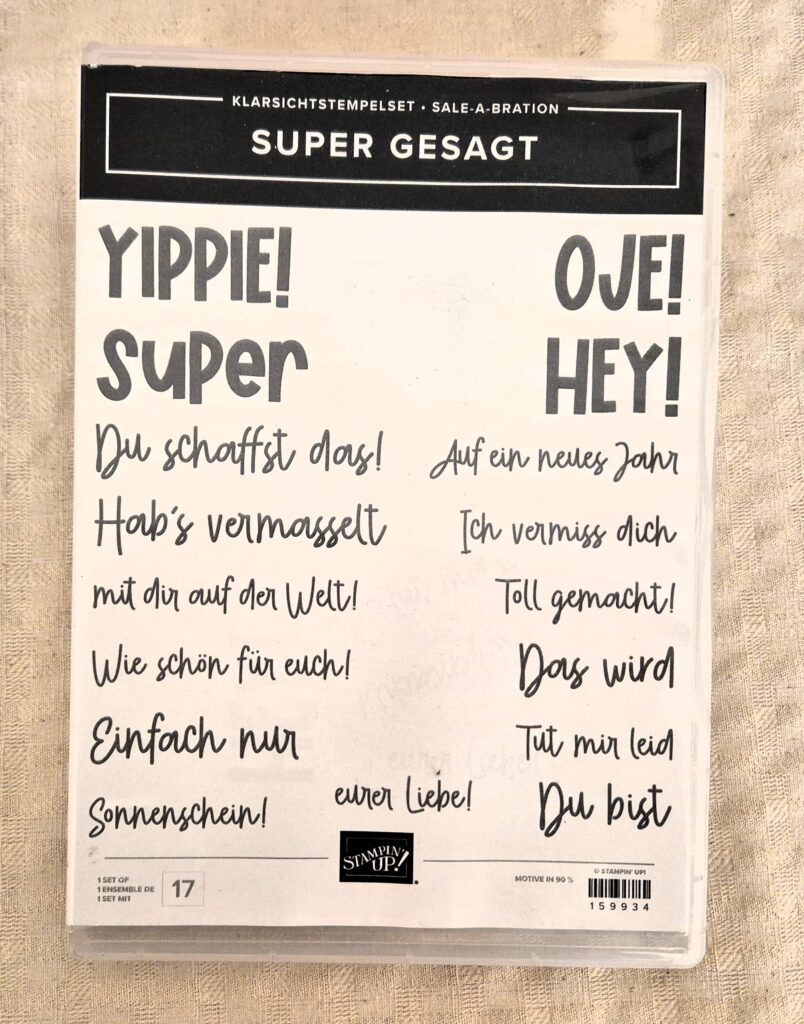 KLARSICHTSTEMPELSET • SALE-A-BRATION
SUPER GESAGT
YIPPIE!
OJE!
super
HEY!
Du schaffst das!
Auf ein neues Jahr
Hab's vermasselt
Ich vermiss dich
mit dir auf der Welt!
Toll gemacht!
Wie schön für euch!
Das wird
Einfach nur
Tut mir leid
Sonnenschein!
eurer Liebe!
Du bist
STAMPIN' UP!
1 SET OF
1 ENSEMBLE DE
1 SET MIT
17
MOTIVE IN 90 %
© STAMPIN' UP!
159934